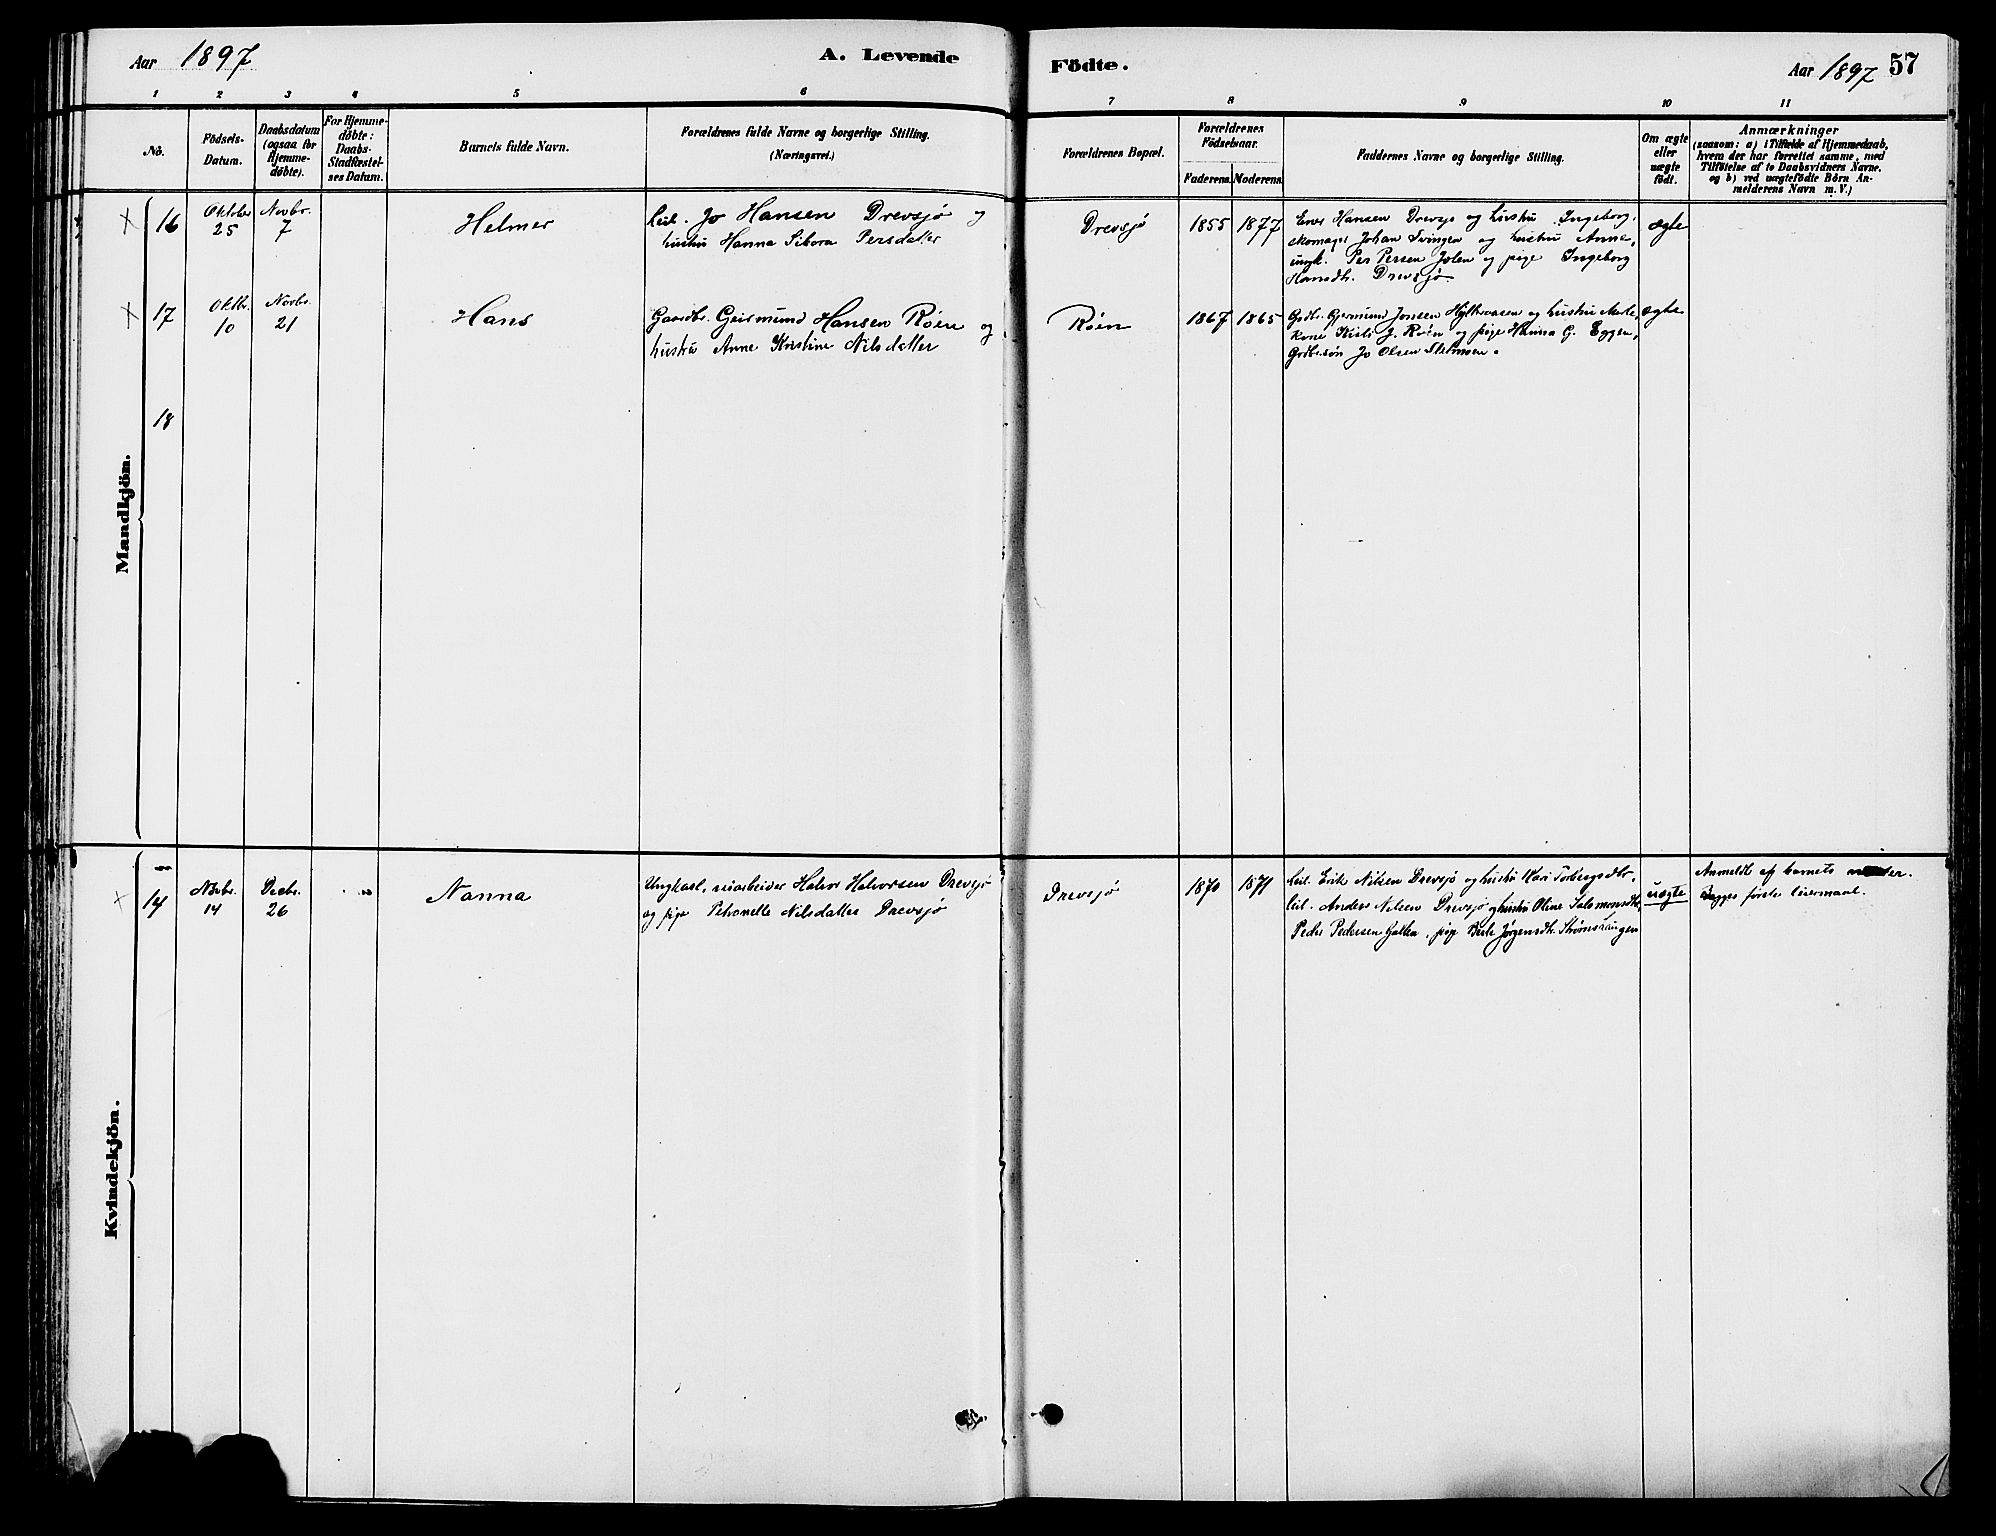 Aar 1897
A. Levende
Födte.
Aar 1897 57
1 2 3 4 5 6 7 8 9 10 11
No.
Födsels-
Datum.
Daabsdatum
(ogsaa for
Hjemme-
döbte).
For Hjemme-
döbte:
Daabs-
Stadfæstel-
ses Datum.
Barnets fulde Navn.
Forældrenes fulde Navne og borgerlige Stilling.
(Næringsvei.)
Forældrenes Bopæl.
Forældrenes
Födselsaar.
Faderens. Moderens.
Faddernes Navne og borgerlige Stilling.
Om ægte
eller
uægte
födt.
Anmærkninger
(saasom: a) i Tilfælde af Hjemmedaab,
hvem der har forrettet samme, med
Tilföielse af to Daabsvidners Navne,
og b) ved uægtefödte Börn An-
melderens Navn m. V.)
Mandkjön.
16
Oktober
25
Novbr.
7
Helmer
Leil. Jo Hansen Drevsjø og
hustru Hanna Sibora Persdatter
Drevsjø
1855 1877
Hansen Drevsjø og hustru Ingeborg,
skomager Johan Svingen og hustru Anne,
ungk. Per Persen Jolen og pige Ingeborg
Hansdtr. Drevsjø.
ægte
17
Oktbr.
10
Novbr.
21
Hans
Gaardbr. Geirmund Hansen Røen og
hustru Anne Kristine Nilsdatter
Røen
1867 1865
Gdbr. Gjermund Jonsen og hustru Marte,
kone J. Røen og pige Hanna G. Eggen,
Jo Olsen
ægte
18
Kvindekjön.
14
Novbr.
14
Decbr.
26
Nanna
Ungkarl, Halvor Halvorsen Drevsjø
og pige Petronelle Nilsdatter Drevsjø
Drevsjø
1870 1871
Leil. Erik Nilsen Drevsjø og hustru Kari Torbergsdtr.,
leil. Anders Nilsen Drevsjø og hustru Oline Salomonsdtr.,
Peder Pedersen Galten, pige Berte Jørgensdtr.
uægte
Anmeldt af barnets moder.
Begges første leiermaal.